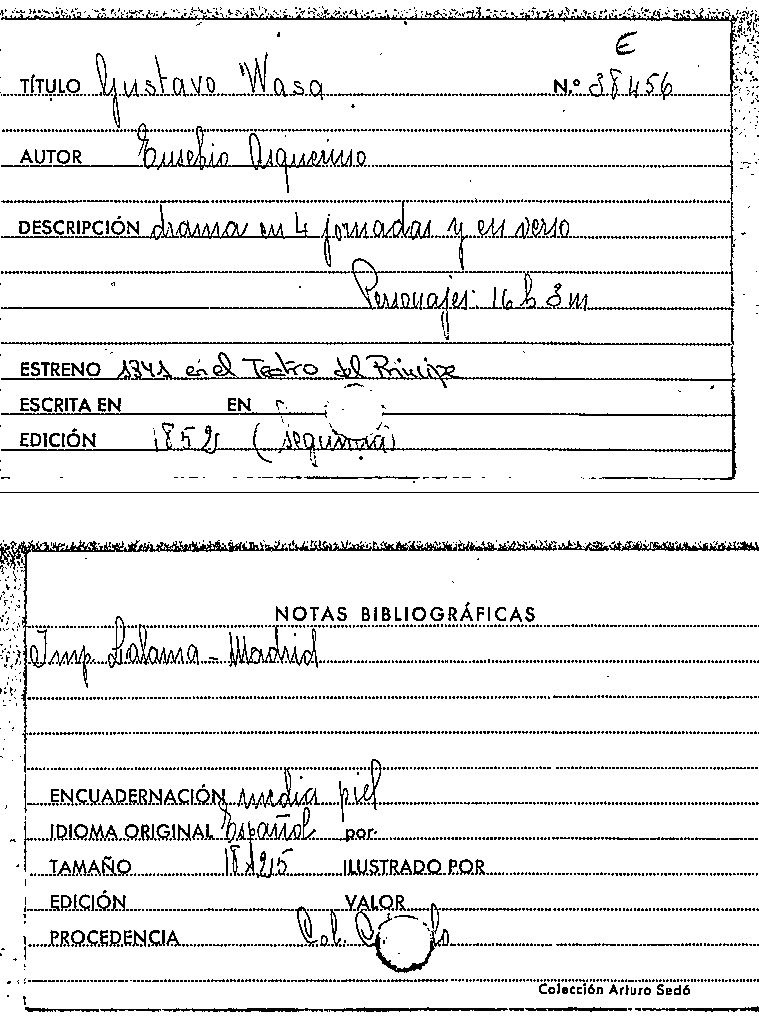 E
TÍTULO Gustavo Wasa N.º 38456
AUTOR Eusebio Asquerino
DESCRIPCIÓN drama en 4 jornadas y en verso
Personajes: 16 h 3 m
ESTRENO 1841 en el Teatro del Principe
ESCRITA EN EN
EDICIÓN 1852 (segunda)
NOTAS BIBLIOGRÁFICAS
Imp. Lalama - Madrid
ENCUADERNACIÓN media piel
IDIOMA ORIGINAL Español por
TAMAÑO 18x25 ILUSTRADO POR
EDICIÓN VALOR
PROCEDENCIA Col.
Colección Arturo Sedó